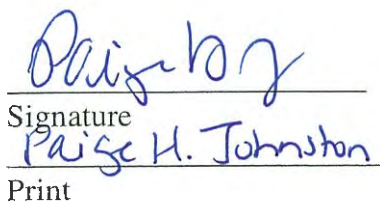 Paige
Signature
Paige H. Johnston
Print